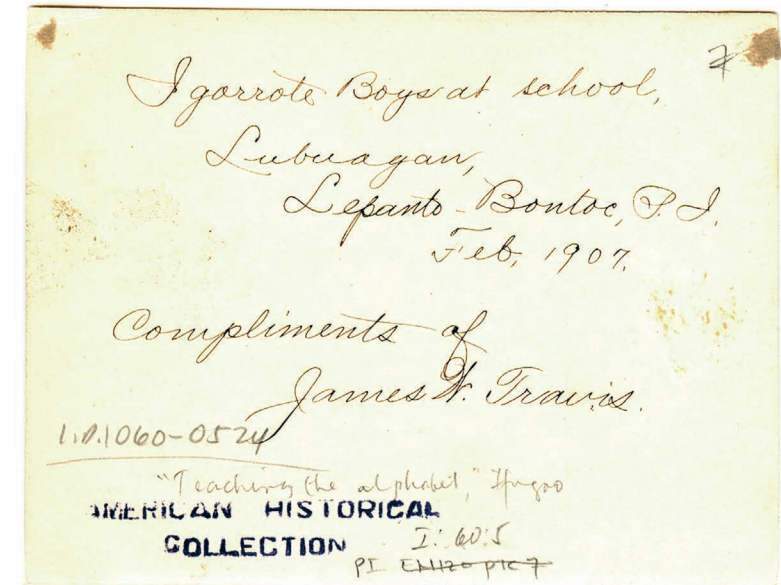 7
Igorrote Boys at school,
Lubuagan,
Lepanto - Bontoc, P. I.
Feb, 1907.
Compliments of
James W. Travis.
1.D.1060-0524
"Teaching the alphabet,"
AMERICAN HISTORICAL
COLLECTION
I: 60:5
PI